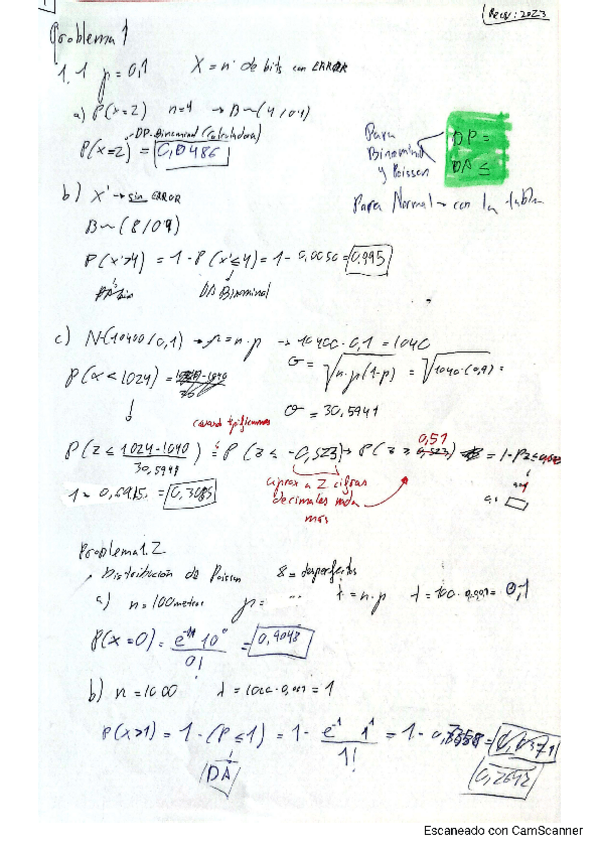 Recup: 2023
Problema 1
1.1 p = 0,1 X = nº de bits con ERROR
a) P(x=2) n=4 → B~(4/0'1)
DP. Binominal (calculadora)
P(x=2) = 0,0486
Para Binominal y Poisson
DP =
DA ≤
Para Normal → con la tabla
b) X' → sin ERROR
B~(8/0'9)
P(x'>4) = 1 - P(x'≤4) = 1 - 0,0050 = 0,995
DA Binominal
c) N~(10400/0,1) → μ = n·p → 10400·0,1 = 1040
σ = √n·p(1-p) = √1040·(0,9) =
P(x<1024) =
σ = 30,5941
cuando tipificamos
P(z ≤ 1024-1040 / 30,5941) = P(z ≤ -0,523) → P(z ≥ 0,523) = 1 -
0,51
1 - 0,6915 = 0,3085
aprox a 2 cifras
decimales nada
más
Problema 1.2
Distribución de Poisson 8 = desperfectos
a) n = 100 metros p = λ = n·p λ = 100·0,001 = 0,1
P(x=0) = = 0,9048
0!
b) n = 1000 λ = 1000·0,001 = 1
P(x>1) = 1 - (P ≤ 1) = 1 - e⁻¹ 1¹ / 1! = 1 -
DA
0,2642
Escaneado con CamScanner